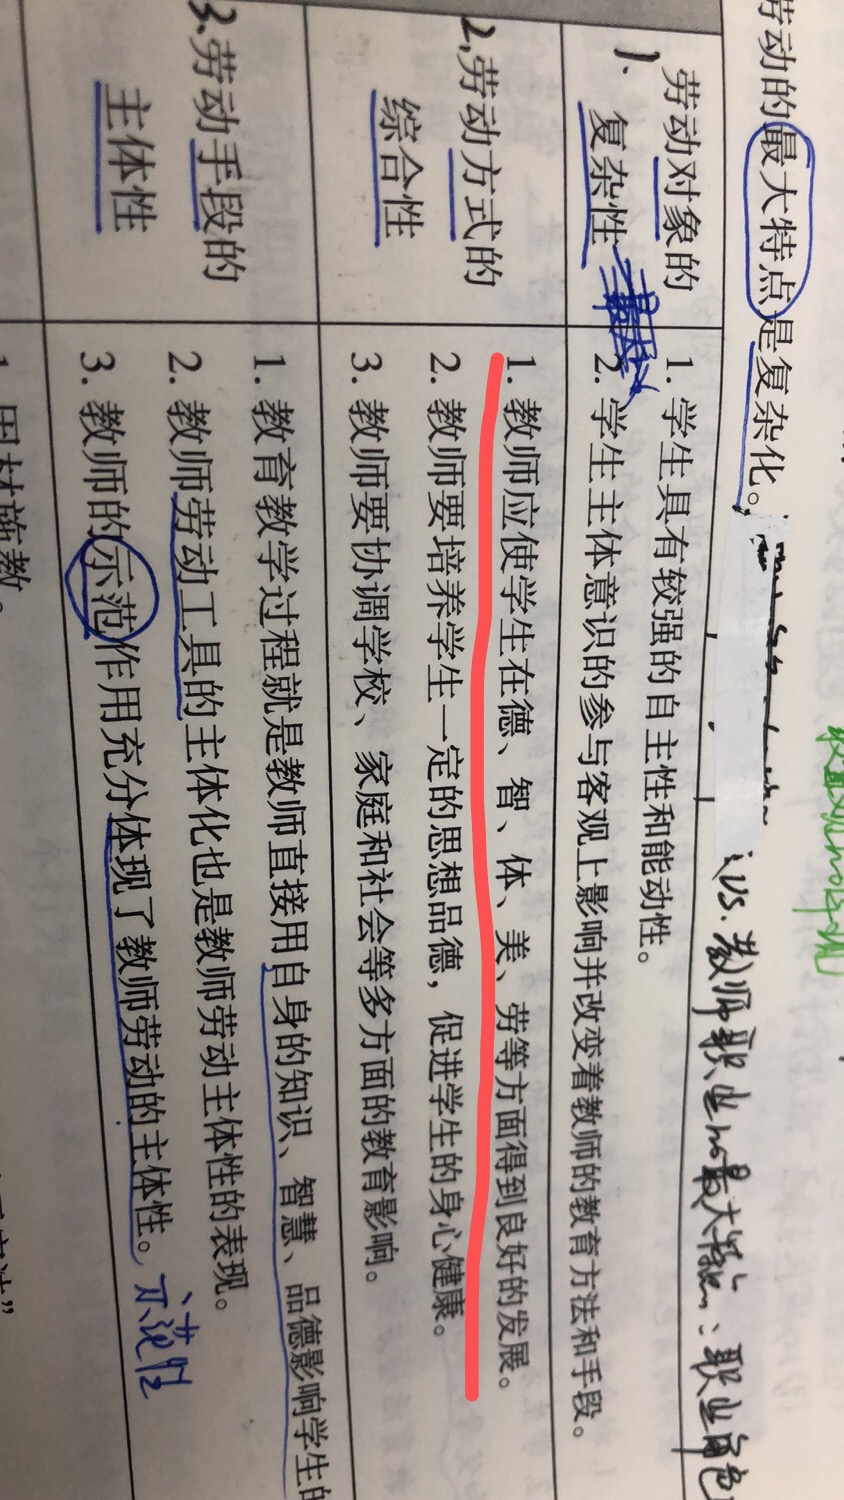 劳动的最大特点是复杂化。
(vs. 教师职业的最大特点：职业角色
1、劳动对象的
复杂性
1. 学生具有较强的自主性和能动性。
2. 学生主体意识的参与客观上影响并改变着教师的教育方法和手段。
2、劳动方式的
综合性
1. 教师应使学生在德、智、体、美、劳等方面得到良好的发展。
2. 教师要培养学生一定的思想品德，促进学生的身心健康。
3. 教师要协调学校、家庭和社会等多方面的教育影响。
3、劳动手段的
主体性
1. 教育教学过程就是教师直接用自身的知识、智慧、品德影响学生的
2. 教师劳动工具的主体化也是教师劳动主体性的表现。
3. 教师的示范作用充分体现了教师劳动的主体性。示范性
1 因材施教。